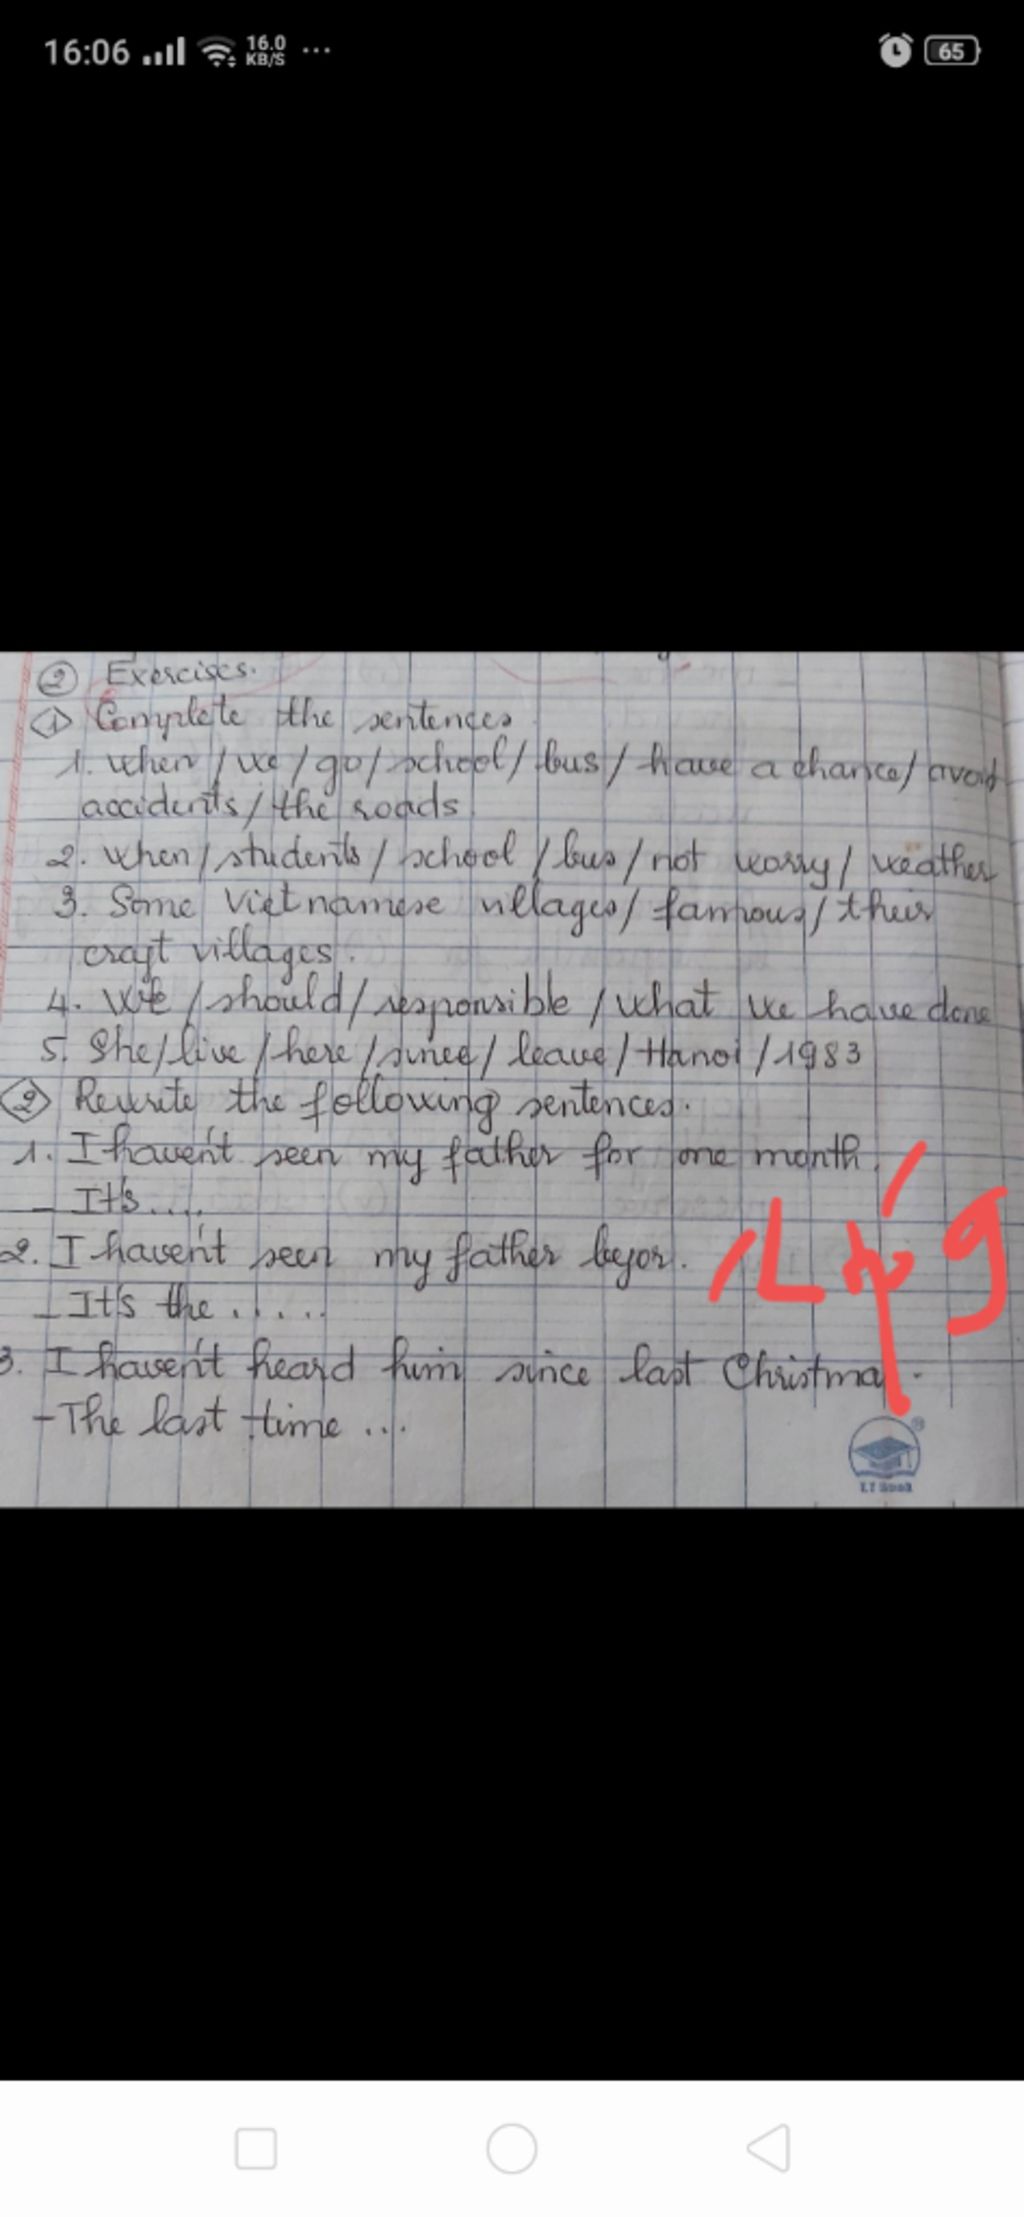 16:06 16.0 KB/S ... 65
② Exercises.
① Complete the sentences
1. when / we / go / school / bus / have a chance / avoid
accidents / the roads
2. when / students / school / bus / not worry / weather
3. Some Vietnamese villages / famous / their
craft villages.
4. We / should / responsible / what we have done
5. She / live / here / since / leave / Hanoi / 1983
② Rewrite the following sentences.
1. I haven't seen my father for one month.
- It's ....
2. I haven't seen my father befor.
- It's the .....
3. I haven't heard him since last Christma .
- The last time ...